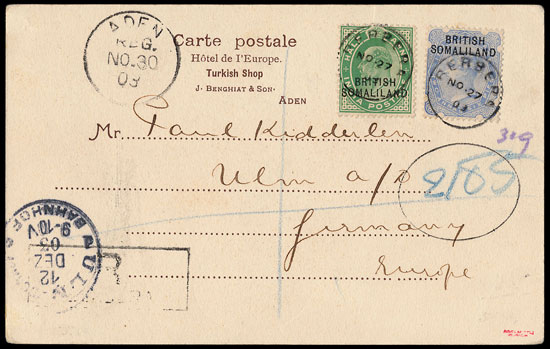 ADEN
REG.
NO.30
03
Carte postale
Hôtel de l'Europe.
Turkish Shop
J. BENGHIAT & SON.
ADEN
HALF ANNA
INDIA POSTAGE
BRITISH
SOMALILAND
BERBERA
NO.27
BRITISH
SOMALILAND
BERBERA
NO.27
03
309
Mr. Paul Kidderlen
Ulm a/D
Germany
Europe
2185
ULM
BAHNHOF
9-10V
03
DEZ
12
R